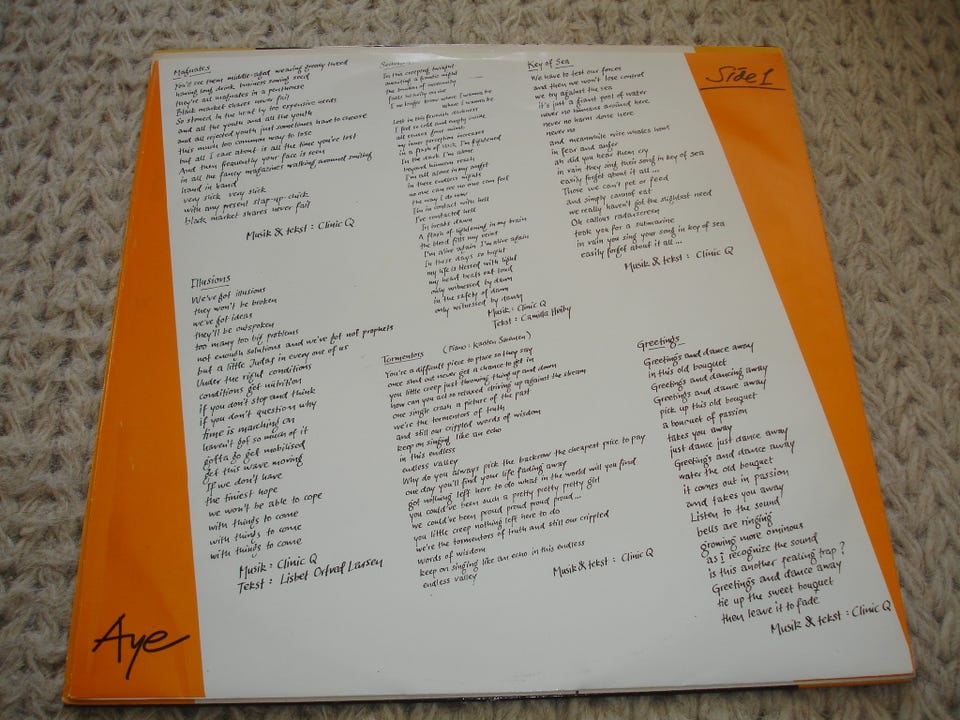 Side 1
Magnates
You'll see them middle-aged wearing greasy tweed
having long drink business seed
they're all magnates in a penthouse
Black market shares never fail
So stoned in the head by too expensive nerds
and all the youth and all the youth
and all rejected youth just sometimes have to choose
this much too common way to lose
but all I care about is all the time you've lost
And then frequently your face is seen
in all the fancy magazines walking around smiling
hand in hand
very slick very slick
with any present slap-up-chick
black market shares never fail
Musik & tekst : Clinic Q
Illusions
We've got illusions
they won't be broken
we've got ideas
they'll be outspoken
too many too big problems
not enough solutions and we've got not prophets
but a little Judas in every one of us
Under the right conditions
conditions get nutrition
if you don't stop and think
if you don't question why
time is marching on
haven't got so much of it
gotta go get mobilised
get this wave moving
If we don't have
the tiniest hope
we won't be able to cope
with things to come
with things to come
with things to come
Musik : Clinic Q
Tekst : Lisbet Ortved Larsen
In this creeping twilight
awaiting a frantic night
the burden of
falls heavily on me
I no longer know where I wanna be
where I wanna be
Lost in this feverish darkness
I feel so cold and empty inside
all senses four minus
my inner perception increases
in a flash of I'm frightened
In the dark I'm alone
beyond human reach
I'm all alone in my angst
in these endless nights
no one can see no one can feel
the way I do now
I'm in contact with hell
I've contacted hell
In breaks dawn
A flash of lightening in my train
the blood fills my veins
I'm alive again I'm alive again
In these days so bright
my life is blessed with light
my heart beats out loud
only witnessed by dawn
in the safety of dawn
only witnessed by dawn
Musik : Clinic Q
Tekst : Camilla Høiby
Tormentors (Piano : Sørensen)
You're a difficult piece to place so they say
once shut out never get a chance to get in
you little creep just throwing thing up and down
how can you act so relaxed driving up against the stream
one single crash a picture of the past
we're the tormentors of truth
and still our crippled words of wisdom
keep on singing like an echo
in this endless
endless valley
Why do you always pick the backrow the cheapest price to pay
one day you'll find your life fading away
got nothing left here to do what in the world will you find
you could've been such a pretty pretty pretty girl
we could've been proud proud proud proud...
you little creep nothing left here to do
we're the tormentors of truth and still our crippled
words of wisdom
keep on singing like an echo in this endless
endless valley
Musik & tekst : Clinic Q
Key of Sea
We have to test our forces
and then we won't lose control
we try against the sea
it's just a giant pool of water
never no humans around here
never no harm done here
never no
and meanwhile nice whales howl
in fear and anger
ah did you hear them cry
in vain they sing their song in key of sea
easily forget about it all ...
Those we can't pet or feed
and simply cannot eat
we really haven't got the slightest need
Oh callous radarscreen
took you for a submarine
in vain you sing your song in key of sea
easily forget about it all ...
Musik & tekst : Clinic Q
Greetings
Greetings and dance away
in this old bouquet
Greetings and dancing away
Greetings and dance away
pick up this old bouquet
a bouquet of passion
takes you away
just dance just dance away
Greetings and dance away
water the old bouquet
it comes out in passion
and takes you away
Listen to the sound
bells are ringing
growing more ominous
as I recognize the sound
is this another pealing trap ?
Greetings and dance away
tie up the sweet bouquet
then leave it to fade
Musik & tekst : Clinic Q
Aye